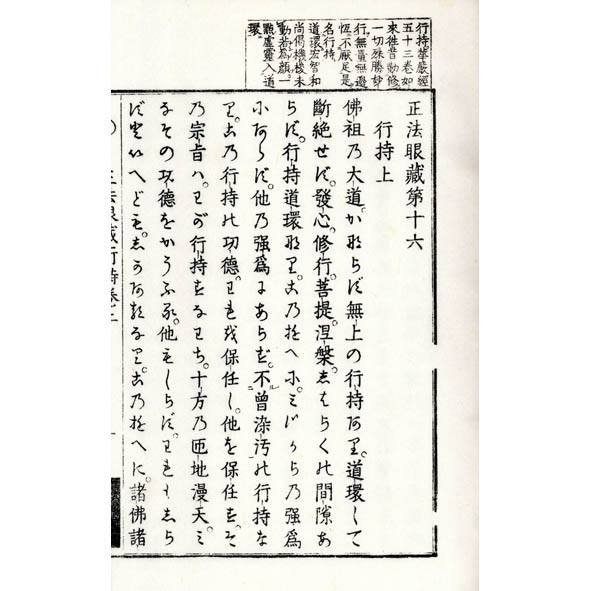 行持華嚴經
五十三卷如
來往昔勤修
一切殊勝妙
行無量無邊
恆不厭足是
名行持
道環宏智和
尚偈機梭未
動若爲顔一
點虛靈入道
環
正法眼藏第十六
行持上
佛祖乃大道。かならず無上の行持あり。道環して
斷絶せず。發心。修行。菩提。涅槃。しばらくの間隙あ
らず。行持道環なり。この乃ゆへに。みづからの强爲
にあらず。他乃强爲にあらず。不曾染汚の行持な
り。この乃行持の功德。われを保任し。他を保任す。そ
乃宗旨ハ。わが行持すなわち。十方乃匝地漫天。み
なその功德をかうふる。他もしらず。われもしら
ずといへども。しかあるなり。この乃ゆへに。諸佛諸